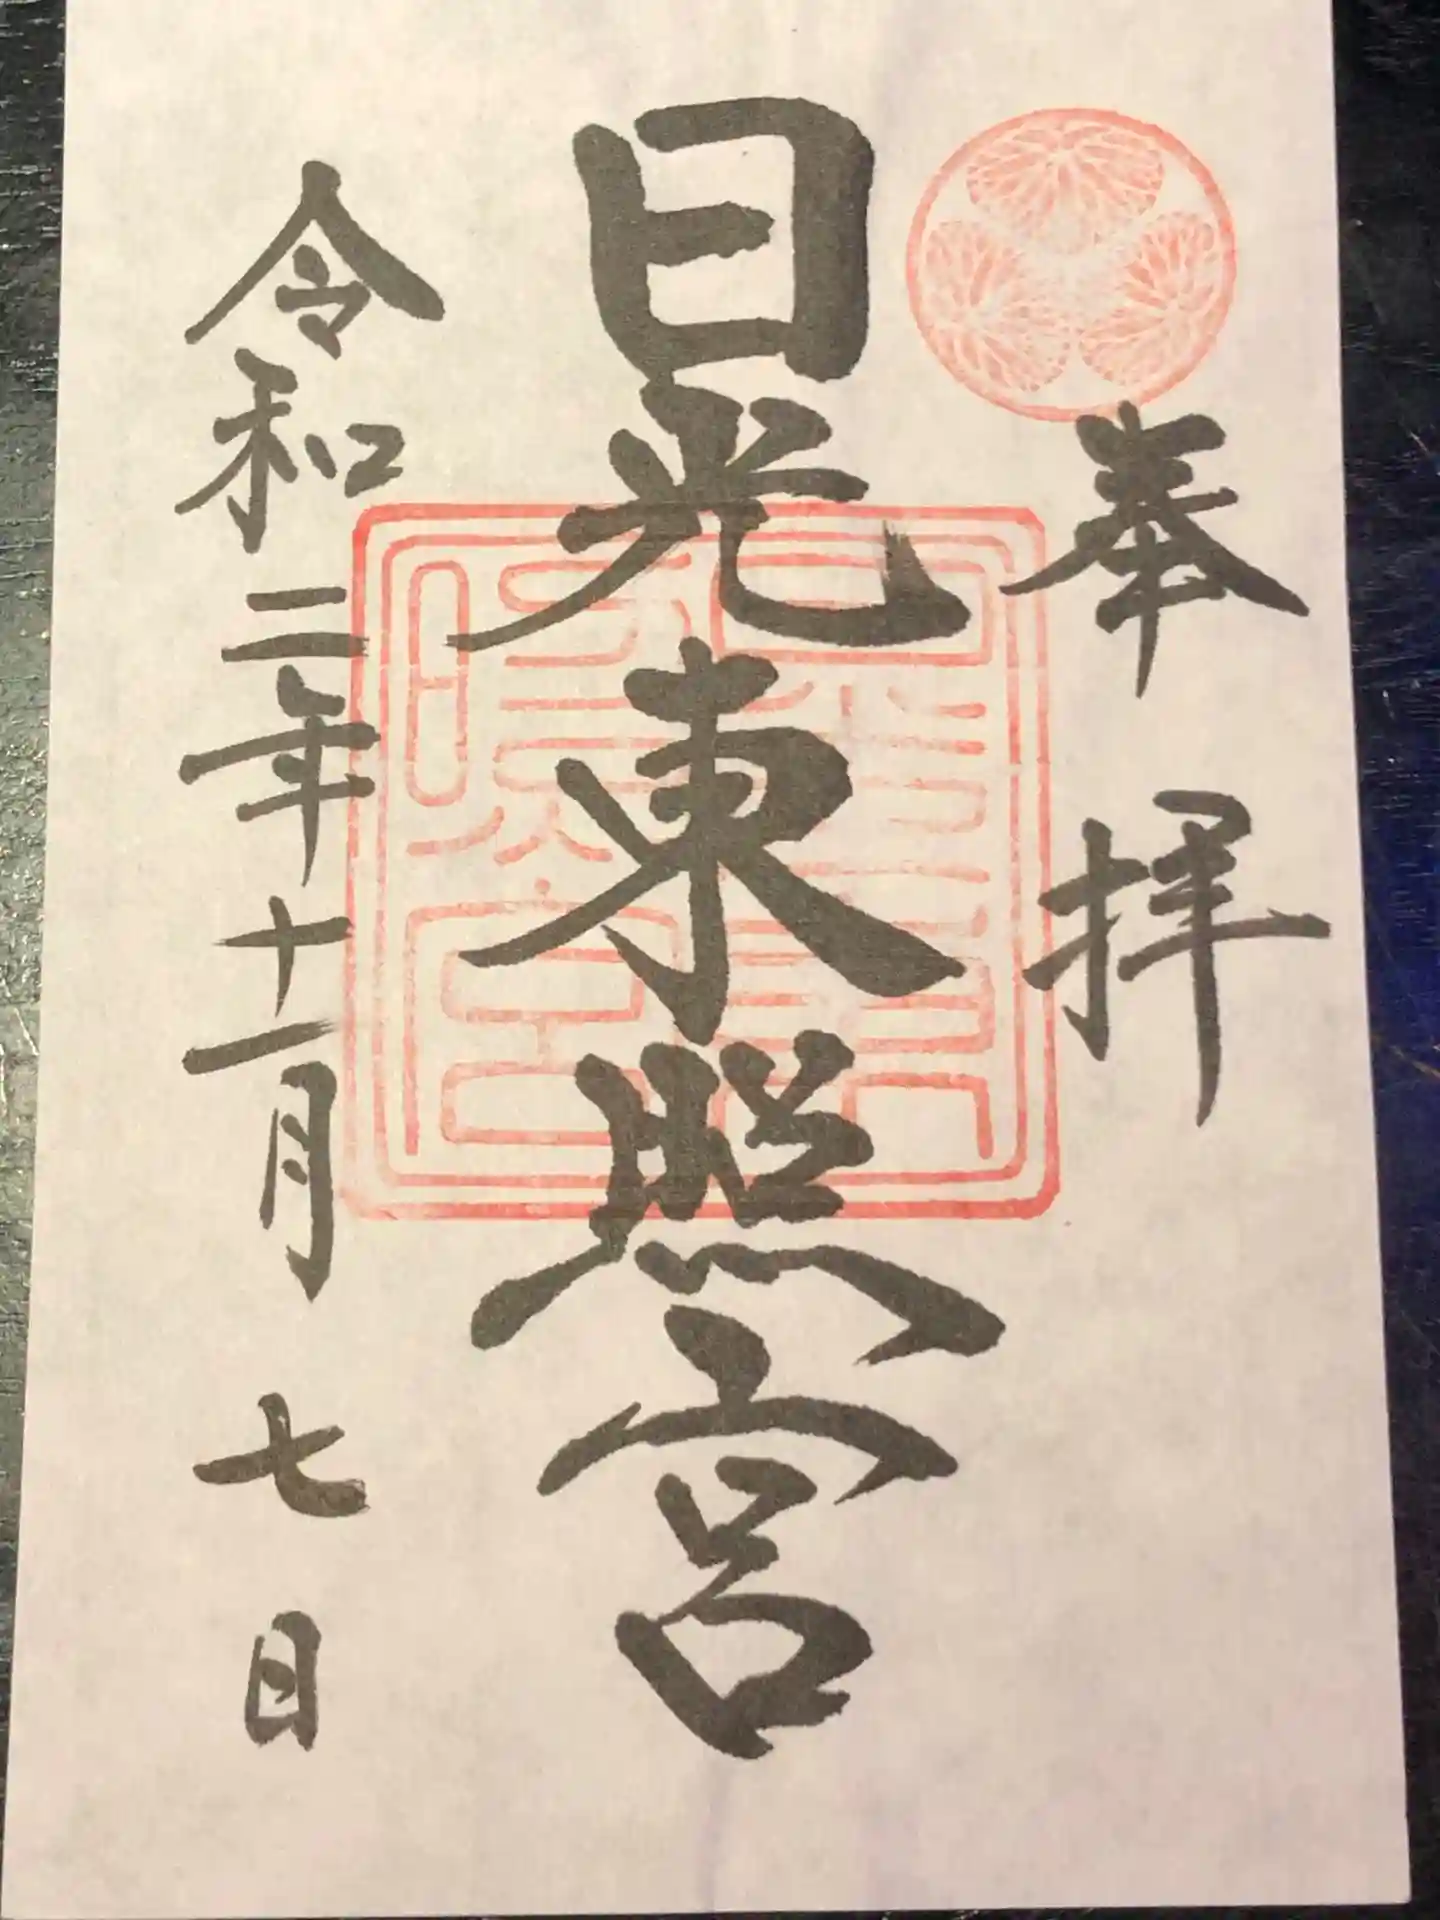 奉拝
日光東照宮
令和二年十一月七日